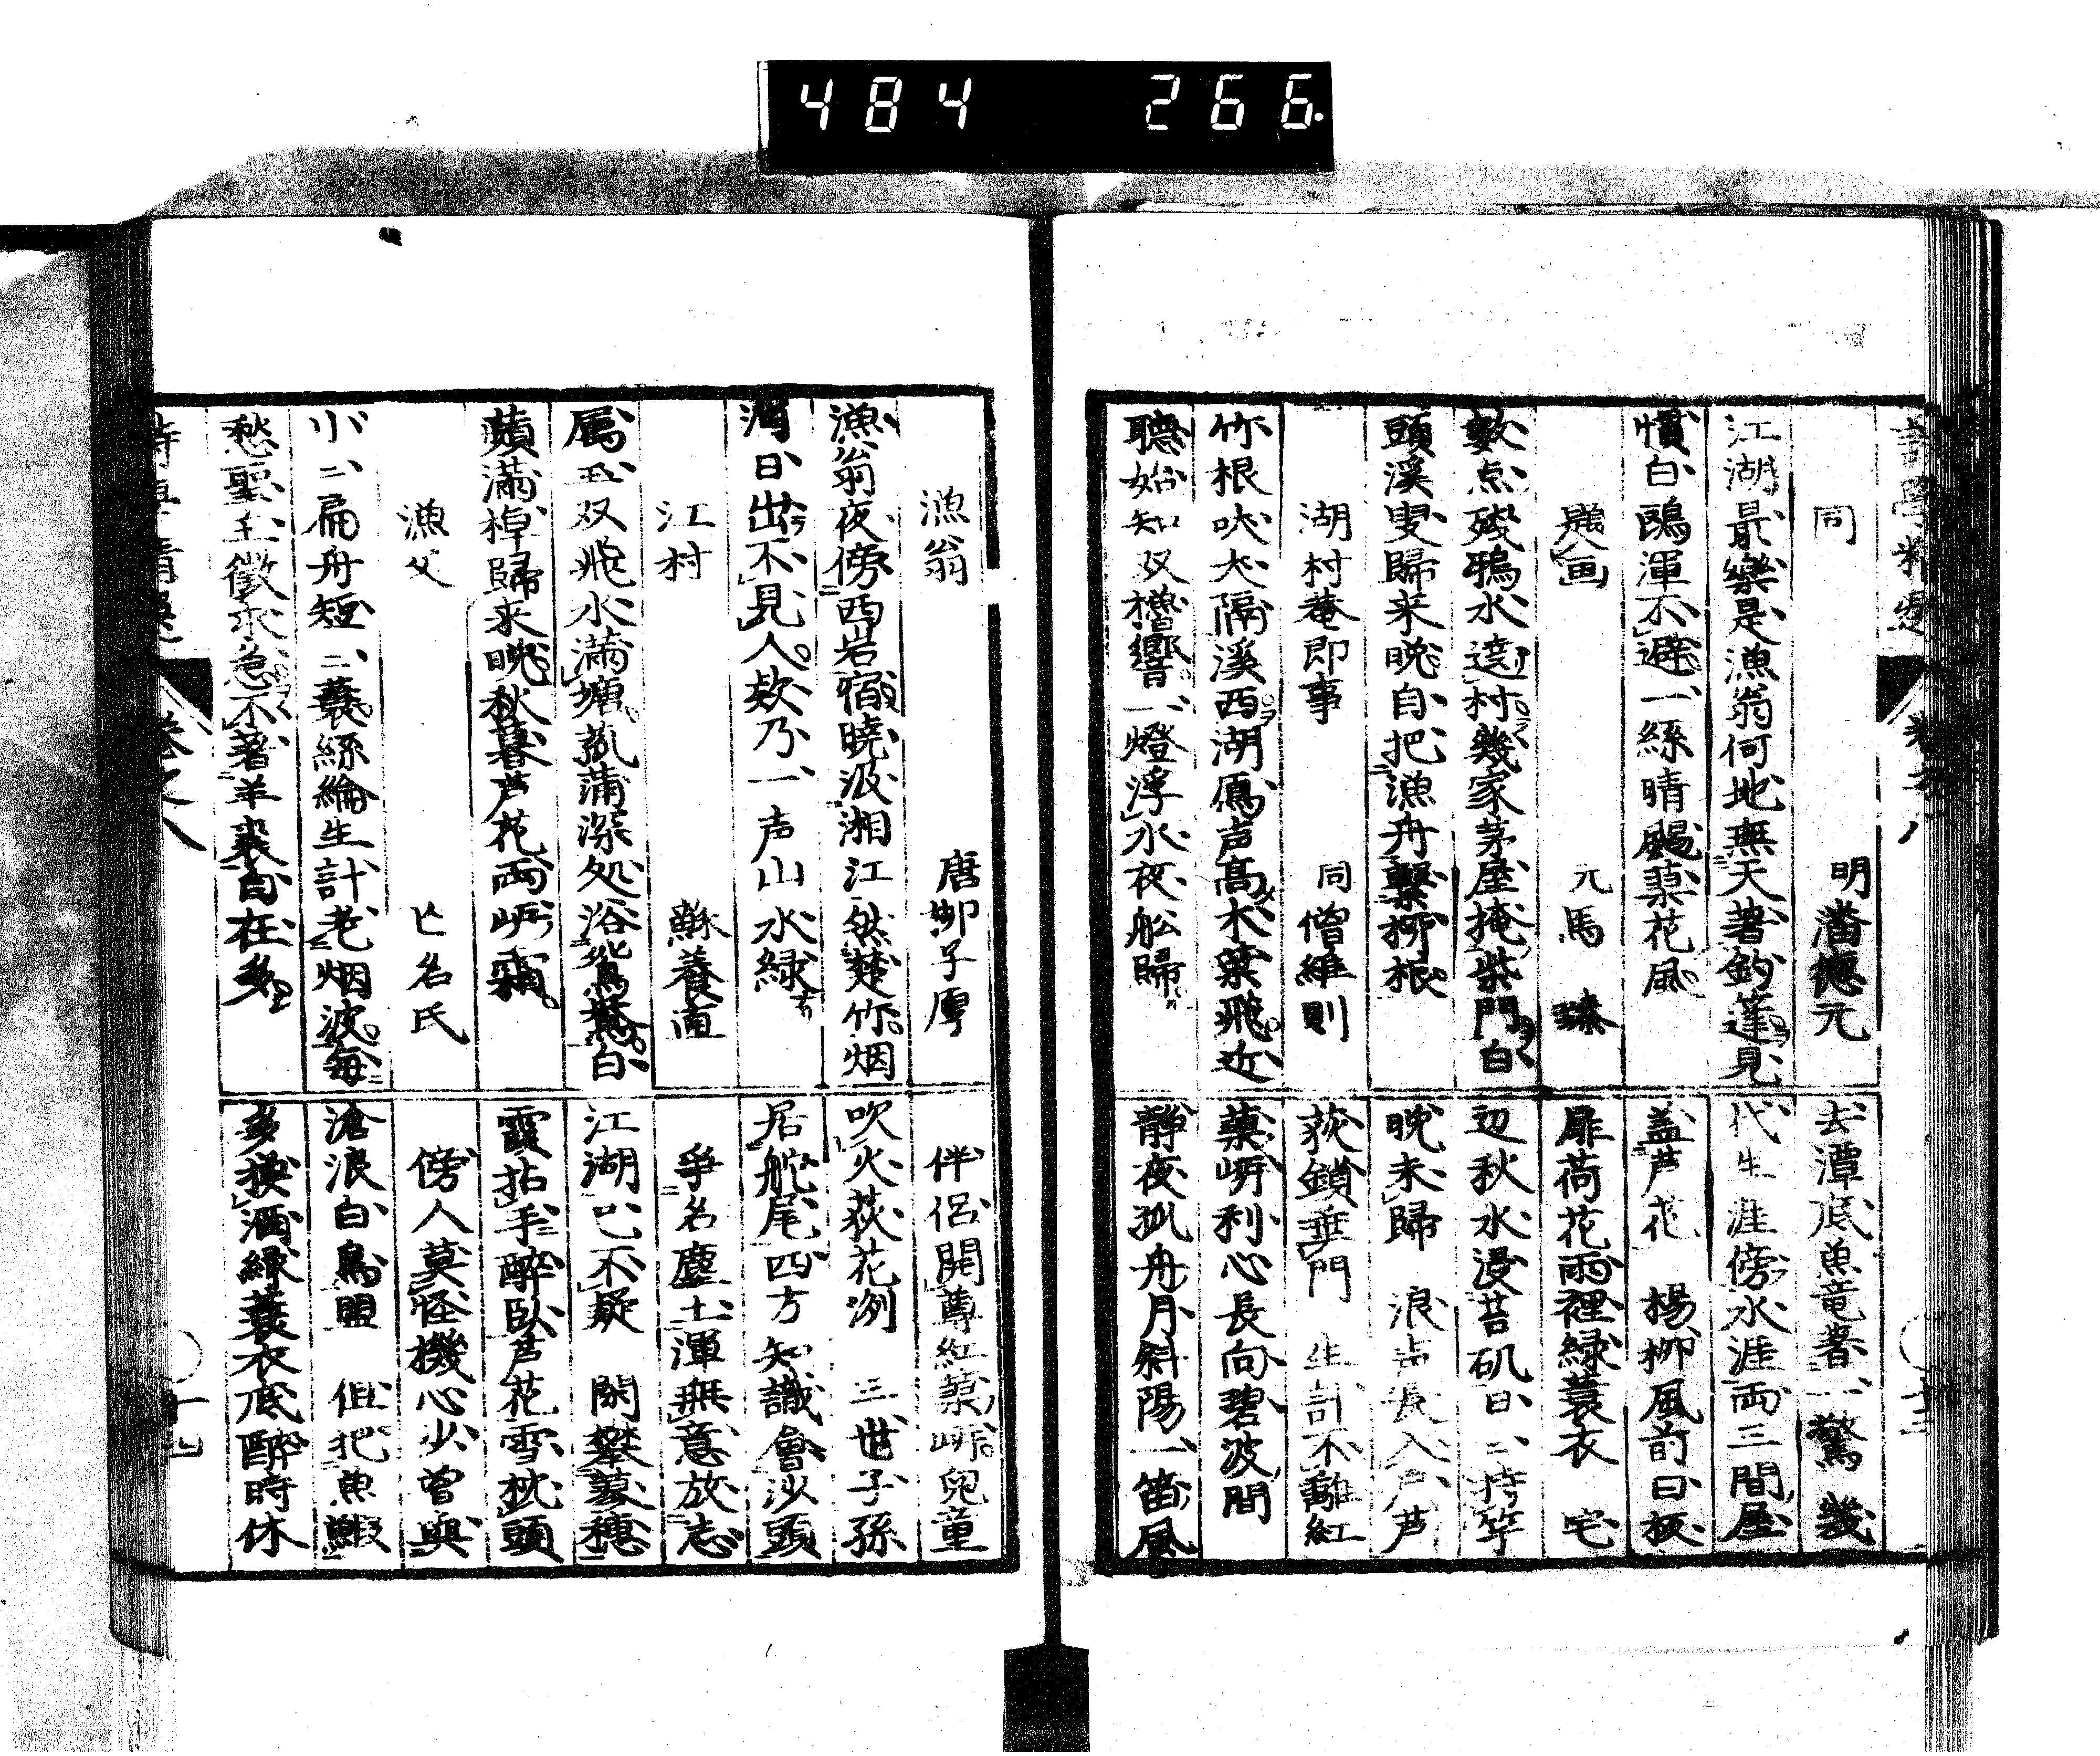 484 266.
同　明潘德元
江湖最樂是漁翁何地無天著釣蓬見
慣白鷗渾不避一絲晴颺蓼花風
題画　元馬臻
數点殘鴉水遶村幾家茅屋掩柴門白
頭溪叟歸来晩自把漁舟繫柳根
湖村菴即事　同僧維則
竹根吠犬隔溪西湖鳫声高木葉飛近
聴始知双櫓響一燈浮水夜舩歸
去潭底魚竜著一驚　幾
代生涯傍水涯両三間屋
盖芦花　楊柳風前曰板
扉荷花雨裡緑蓑衣　宅
辺秋水浸苔矶日ニ持竿
晩未歸　浪声長入戸芦
荻鎖垂門　生計不離紅
蓼岍利心長向碧波間
静夜孤舟月斜陽一笛風
漁翁　唐柳子厚
漁翁夜傍西岩宿曉汲湘江然楚竹烟
消日出不見人欸乃一声山水緑
江村　蘇養直
属玉双飛水満塘菰蒲深処浴鴛鴦白
蘋満棹歸来晩秋暮芦花両岍霜
漁父　亡名氏
小ニ扁舟短ニ蓑絲綸生計老烟波毎
愁聖主徴求急不著羊裘自在多
伴侶開尊紅蓼岍兒童
吹火荻花洌　三世子孫
居舵尾四方知識會沙頭
爭名塵土渾無意放志
江湖已不疑　閑攀蓴穂
霞拈手醉臥芦花雪枕頭
傍人莫怪機心少曽與
滄浪白鳥盟　但把魚鰕
多換酒緑蓑衣底醉時休
巻之八